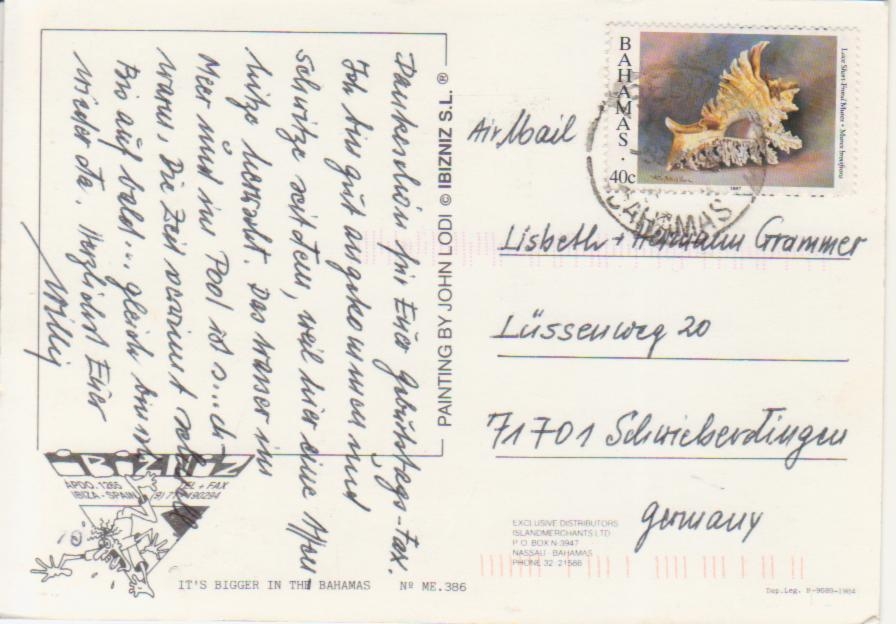 Dankeschön für Euer Geburtstags-Fax.
Ich bin gut angekommen und
schwitze seitdem, weil hier eine
hitze herrscht. Das Wasser im
Meer und im Pool ist s...ch
warm. Die Zeit verrinnt
Bis auf bald... gleich bin
wieder da. Herzlichst Euer
Willy
PAINTING BY JOHN LODI © IBIZNIZ S.L. ®
BAHAMAS · 40c
Lace Short-Frond Murex •
1997
BAHAMAS
Air Mail
Lisbeth + Hermann Grammer
Lüssenweg 20
71701 Schwieberdingen
Germany
IBIZNIZ
APDO. 1265 TEL + FAX
IBIZA - SPAIN
EXCLUSIVE DISTRIBUTORS
ISLANDMERCHANTS LTD
P.O. BOX N-3947
NASSAU - BAHAMAS
PHONE 32 21586
IT'S BIGGER IN THE BAHAMAS Nº ME.386
Dep. Leg. B-9089-1984